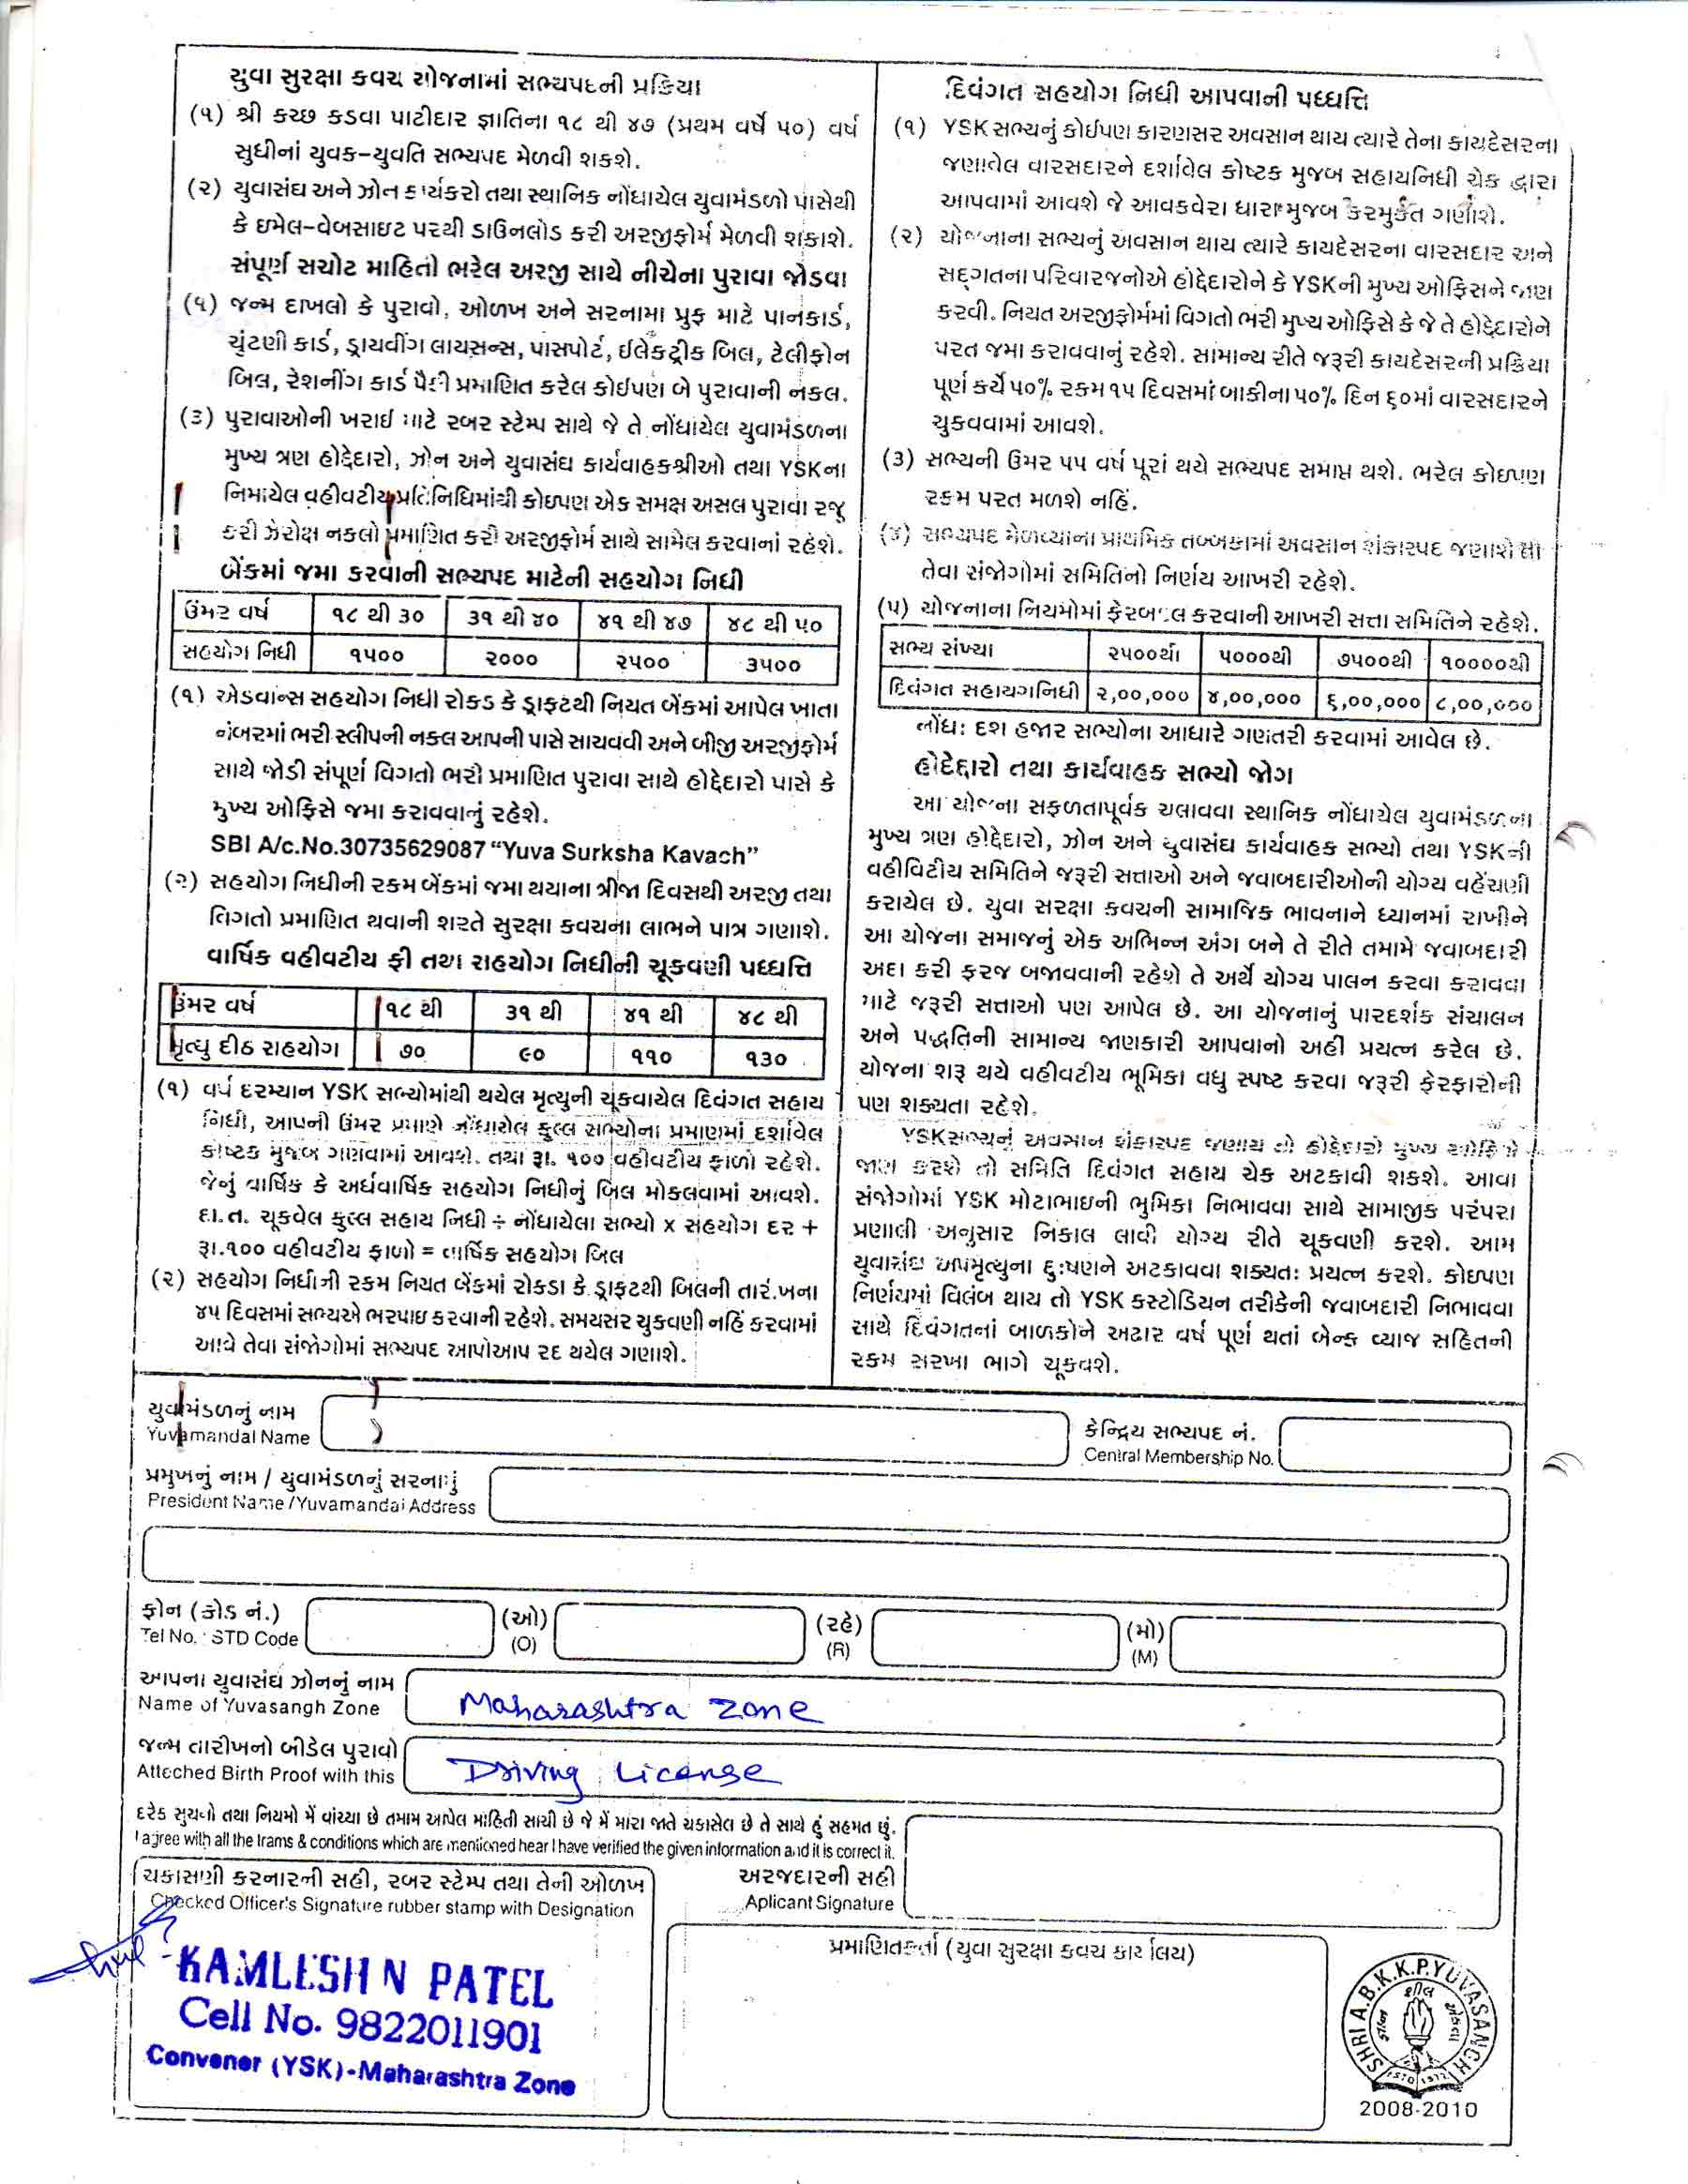 યુવા સુરક્ષા કવચ યોજનામાં સભ્યપદની પ્રક્રિયા
(૧) શ્રી કચ્છ કડવા પાટીદાર જ્ઞાતિના ૧૮ થી ૪૭ (પ્રથમ વર્ષે ૫૦) વર્ષ
સુધીનાં યુવક-યુવતિ સભ્યપદ મેળવી શકશે.
(૨) યુવાસંઘ અને ઝોન કાર્યકરો તથા સ્થાનિક નોંધાયેલ યુવામંડળો પાસેથી
કે ઇમેલ-વેબસાઇટ પરથી ડાઉનલોડ કરી અરજીફોર્મ મેળવી શકાશે.
સંપૂર્ણ સચોટ માહિતી ભરેલ અરજી સાથે નીચેના પુરાવા જોડવા
(૧) જન્મ દાખલો કે પુરાવો, ઓળખ અને સરનામા પ્રુફ માટે પાનકાર્ડ,
ચુંટણી કાર્ડ, ડ્રાયવીંગ લાયસન્સ, પાસપોર્ટ, ઈલેક્ટ્રીક બિલ, ટેલીફોન
બિલ, રેશનીંગ કાર્ડ પૈકી પ્રમાણિત કરેલ કોઈપણ બે પુરાવાની નકલ.
(૩) પુરાવાઓની ખરાઈ માટે રબર સ્ટેમ્પ સાથે જે તે નોંધાયેલ યુવામંડળના
મુખ્ય ત્રણ હોદ્દેદારો, ઝોન અને યુવાસંઘ કાર્યવાહકશ્રીઓ તથા YSKના
નિમાયેલ વહીવટીય પ્રતિનિધિમાંથી કોઇપણ એક સમક્ષ અસલ પુરાવા રજૂ
કરી ઝેરોક્ષ નકલો પ્રમાણિત કરી અરજીફોર્મ સાથે સામેલ કરવાનાં રહેશે.
બેંકમાં જમા કરવાની સભ્યપદ માટેની સહયોગ નિધી
ઉંમર વર્ષ ૧૮ થી ૩૦ ૩૧ થી ૪૦ ૪૧ થી ૪૭ ૪૮ થી ૫૦
સહયોગ નિધી ૧૫૦૦ ૨૦૦૦ ૨૫૦૦ ૩૫૦૦
(૧) એડવાન્સ સહયોગ નિધી રોકડ કે ડ્રાફ્ટથી નિયત બેંકમાં આપેલ ખાતા
નંબરમાં ભરી સ્લીપની નકલ આપની પાસે સાચવવી અને બીજી અરજીફોર્મ
સાથે જોડી સંપૂર્ણ વિગતો ભરી પ્રમાણિત પુરાવા સાથે હોદ્દેદારો પાસે કે
મુખ્ય ઓફિસે જમા કરાવવાનું રહેશે.
SBI A/c.No.30735629087 “Yuva Surksha Kavach”
(૨) સહયોગ નિધીની રકમ બેંકમાં જમા થયાના ત્રીજા દિવસથી અરજી તથા
વિગતો પ્રમાણિત થવાની શરતે સુરક્ષા કવચના લાભને પાત્ર ગણાશે.
વાર્ષિક વહીવટીય ફી તથા સહયોગ નિધીની ચૂકવણી પધ્ધત્તિ
ઉંમર વર્ષ ૧૮ થી ૩૧ થી ૪૧ થી ૪૮ થી
મૃત્યુ દીઠ સહયોગ ૭૦ ૯૦ ૧૧૦ ૧૩૦
(૧) વર્ષ દરમ્યાન YSK સભ્યોમાંથી થયેલ મૃત્યુની ચૂકવાયેલ દિવંગત સહાય
નિધી, આપની ઉંમર પ્રમાણે નોંધાયેલ કુલ્લ સભ્યોના પ્રમાણમાં દર્શાવેલ
કોષ્ટક મુજબ ગણવામાં આવશે. તથા રૂા. ૧૦૦ વહીવટીય ફાળો રહેશે.
જેનું વાર્ષિક કે અર્ધવાર્ષિક સહયોગ નિધીનું બિલ મોકલવામાં આવશે.
દા.ત. ચૂકવેલ કુલ્લ સહાય નિધી ÷ નોંધાયેલા સભ્યો x સહયોગ દર +
રૂા.૧૦૦ વહીવટીય ફાળો = વાર્ષિક સહયોગ બિલ
(૨) સહયોગ નિધીની રકમ નિયત બેંકમાં રોકડા કે ડ્રાફ્ટથી બિલની તારીખના
૪૫ દિવસમાં સભ્યએ ભરપાઇ કરવાની રહેશે. સમયસર ચુકવણી નહિં કરવામાં
આવે તેવા સંજોગોમાં સભ્યપદ આપોઆપ રદ થયેલ ગણાશે.
દિવંગત સહયોગ નિધી આપવાની પધ્ધત્તિ
(૧) YSK સભ્યનું કોઈપણ કારણસર અવસાન થાય ત્યારે તેના કાયદેસરના
જણાવેલ વારસદારને દર્શાવેલ કોષ્ટક મુજબ સહાયનિધી ચેક દ્વારા
આપવામાં આવશે જે આવકવેરા ધારા મુજબ કરમુક્ત ગણાશે.
(૨) યોજનાના સભ્યનું અવસાન થાય ત્યારે કાયદેસરના વારસદાર અને
સદ્ગતના પરિવારજનોએ હોદ્દેદારોને કે YSKની મુખ્ય ઓફિસને જાણ
કરવી. નિયત અરજીફોર્મમાં વિગતો ભરી મુખ્ય ઓફિસે કે જે તે હોદ્દેદારોને
પરત જમા કરાવવાનું રહેશે. સામાન્ય રીતે જરૂરી કાયદેસરની પ્રક્રિયા
પૂર્ણ કર્યે ૫૦% રકમ ૧૫ દિવસમાં બાકીના ૫૦% દિન ૬૦માં વારસદારને
ચુકવવામાં આવશે.
(૩) સભ્યની ઉંમર ૫૫ વર્ષ પૂરાં થયે સભ્યપદ સમાપ્ત થશે. ભરેલ કોઇપણ
રકમ પરત મળશે નહિં.
(૪) સભ્યપદ મેળવ્યાના પ્રાથમિક તબ્બકામાં અવસાન શંકાસ્પદ જણાશે તો
તેવા સંજોગોમાં સમિતિનો નિર્ણય આખરી રહેશે.
(૫) યોજનાના નિયમોમાં ફેરબદલ કરવાની આખરી સત્તા સમિતિને રહેશે.
સભ્ય સંખ્યા ૨૫૦૦થી ૫૦૦૦થી ૭૫૦૦થી ૧૦૦૦૦થી
દિવંગત સહાયગનિધી ૨,૦૦,૦૦૦ ૪,૦૦,૦૦૦ ૬,૦૦,૦૦૦ ૮,૦૦,૦૦૦
નોંધ: દશ હજાર સભ્યોના આધારે ગણતરી કરવામાં આવેલ છે.
હોદેદ્દારો તથા કાર્યવાહક સભ્યો જોગ
આ યોજના સફળતાપૂર્વક ચલાવવા સ્થાનિક નોંધાયેલ યુવામંડળના
મુખ્ય ત્રણ હોદ્દેદારો, ઝોન અને યુવાસંઘ કાર્યવાહક સભ્યો તથા YSKની
વહીવિટીય સમિતિને જરૂરી સત્તાઓ અને જવાબદારીઓની યોગ્ય વહેંચણી
કરાયેલ છે. યુવા સરક્ષા કવચની સામાજિક ભાવનાને ધ્યાનમાં રાખીને
આ યોજના સમાજનું એક અભિન્ન અંગ બને તે રીતે તમામે જવાબદારી
અદા કરી ફરજ બજાવવાની રહેશે તે અર્થે યોગ્ય પાલન કરવા કરાવવા
માટે જરૂરી સત્તાઓ પણ આપેલ છે. આ યોજનાનું પારદર્શક સંચાલન
અને પદ્ધતિની સામાન્ય જાણકારી આપવાનો અહી પ્રયત્ન કરેલ છે.
યોજના શરૂ થયે વહીવટીય ભૂમિકા વધુ સ્પષ્ટ કરવા જરૂરી ફેરફારોની
પણ શક્યતા રહેશે.
YSKસભ્યનું અવસાન શંકાસ્પદ જણાય તો હોદ્દેદારો મુખ્ય ઓફિસે
જાણ કરશે તો સમિતિ દિવંગત સહાય ચેક અટકાવી શકશે. આવા
સંજોગોમાં YSK મોટાભાઇની ભુમિકા નિભાવવા સાથે સામાજીક પરંપરા
પ્રણાલી અનુસાર નિકાલ લાવી યોગ્ય રીતે ચૂકવણી કરશે. આમ
યુવાસંઘ અપમૃત્યુના દુઃષણને અટકાવવા શક્યતઃ પ્રયત્ન કરશે. કોઇપણ
નિર્ણયમાં વિલંબ થાય તો YSK કસ્ટોડિયન તરીકેની જવાબદારી નિભાવવા
સાથે દિવંગતનાં બાળકોને અઢાર વર્ષ પૂર્ણ થતાં બેન્ક વ્યાજ સહિતની
રકમ સરખા ભાગે ચૂકવશે.
યુવામંડળનું નામ
Yuvamandal Name
કેન્દ્રિય સભ્યપદ નં.
Central Membership No.
પ્રમુખનું નામ / યુવામંડળનું સરનામું
President Name /Yuvamandal Address
ફોન (કોડ નં.) (ઓ) (રહે) (મો)
Tel No. : STD Code (O) (R) (M)
આપના યુવાસંઘ ઝોનનું નામ
Name of Yuvasangh Zone Maharashtra Zone
જન્મ તારીખનો બીડેલ પુરાવો
Atteched Birth Proof with this Driving License
દરેક સુચનો તથા નિયમો મેં વાંચ્યા છે તમામ આપેલ માહિતી સાચી છે જે મેં મારા જાતે ચકાસેલ છે તે સાથે હું સહમત છું.
I agree with all the trams & conditions which are mentioned hear I have verified the given information and it is correct it.
ચકાસણી કરનારની સહી, રબર સ્ટેમ્પ તથા તેની ઓળખ
Checked Officer's Signature rubber stamp with Designation
અરજદારની સહી
Aplicant Signature
KAMLESH N PATEL
Cell No. 9822011901
Convener (YSK)-Maharashtra Zone
પ્રમાણિતકર્તા (યુવા સુરક્ષા કવચ કાર્યાલય)
SHRI A.B.K.K.P.YUVASANGH
2008-2010